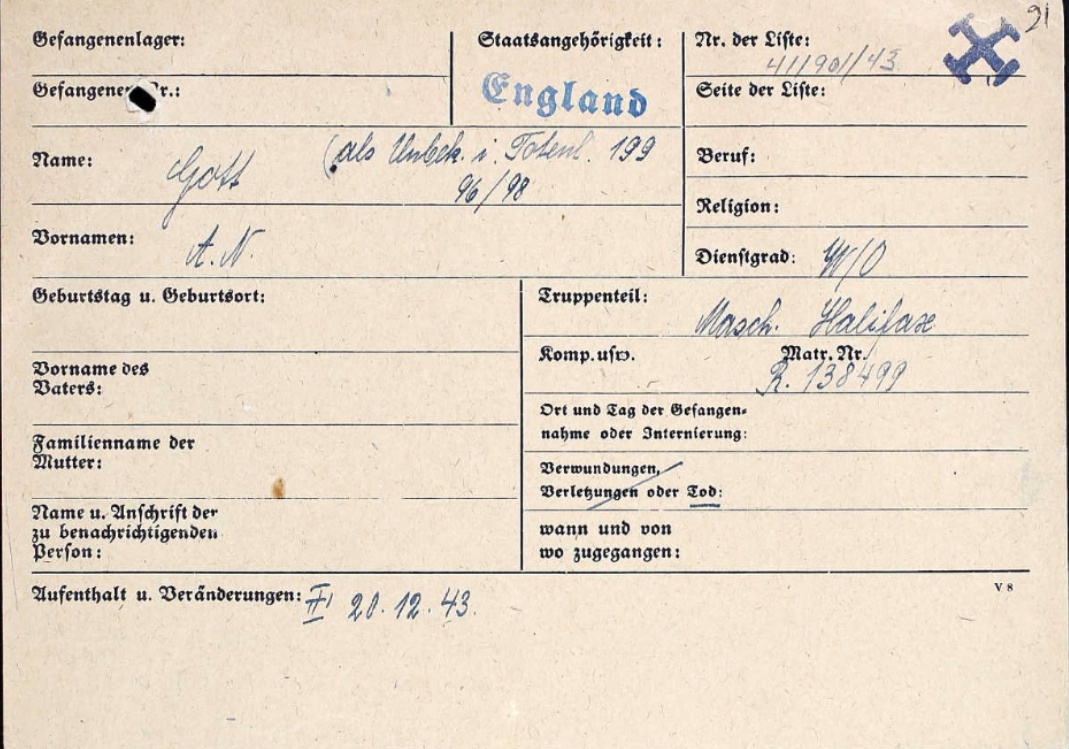 91
Gefangenenlager:
Staatsangehörigkeit:
Nr. der Liste:
411901/43
Gefangenen Nr.:
England
Seite der Liste:
Name: Gott (als Unbek. i. Totenl. 199
96/98
Beruf:
Religion:
Vornamen: A. N.
Dienstgrad: W/O
Geburtstag u. Geburtsort:
Truppenteil: Masch. Halifax
Komp.usw. Matr. Nr.
R. 138499
Vorname des
Vaters:
Ort und Tag der Gefangen-
nahme oder Internierung:
Familienname der
Mutter:
Verwundungen,
Verletzungen oder Tod:
Name u. Anschrift der
zu benachrichtigenden
Person:
wann und von
wo zugegangen:
Aufenthalt u. Veränderungen: 20.12.43.
V 8